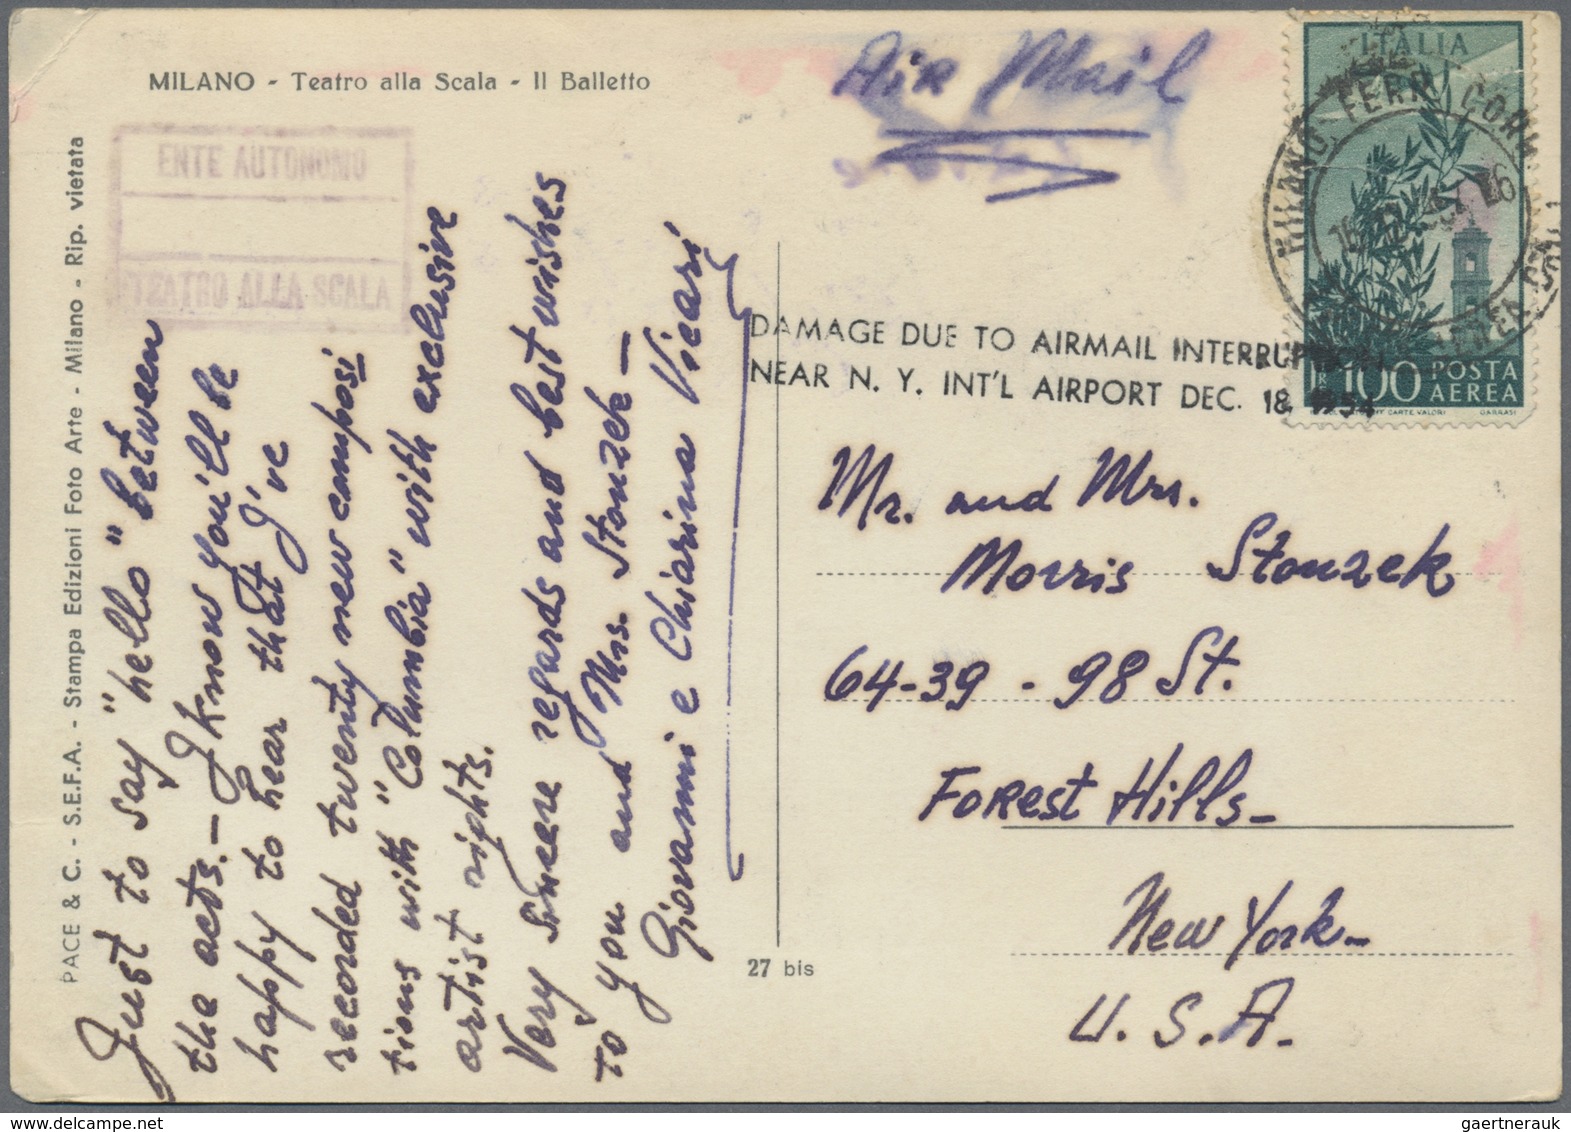 MILANO - Teatro alla Scala - Il Balletto
PACE & C. - S.E.F.A. - Stampa Edizioni Foto Arte - Milano - Rip. vietata
ENTE AUTONOMO
TEATRO ALLA SCALA
Just to say "hello" between
the acts. - I know you'll be
happy to hear that I've
recorded twenty new composi
tions with "Columbia" with exclusive
artist rights.
Very sincere regards and best wishes
to you and Mrs. Stonzek -
Giovanni e Chiarina Vicari
27 bis
Air Mail
ITALIA
100 POSTA
AEREA
MILANO. FERR. CORR.
DAMAGE DUE TO AIRMAIL INTERRUPTION
NEAR N. Y. INT'L AIRPORT DEC. 18, 1954
Mr. and Mrs.
Morris Stonzek
64-39 - 98 St.
Forest Hills -
New York -
U. S. A. -
gaertnerauk